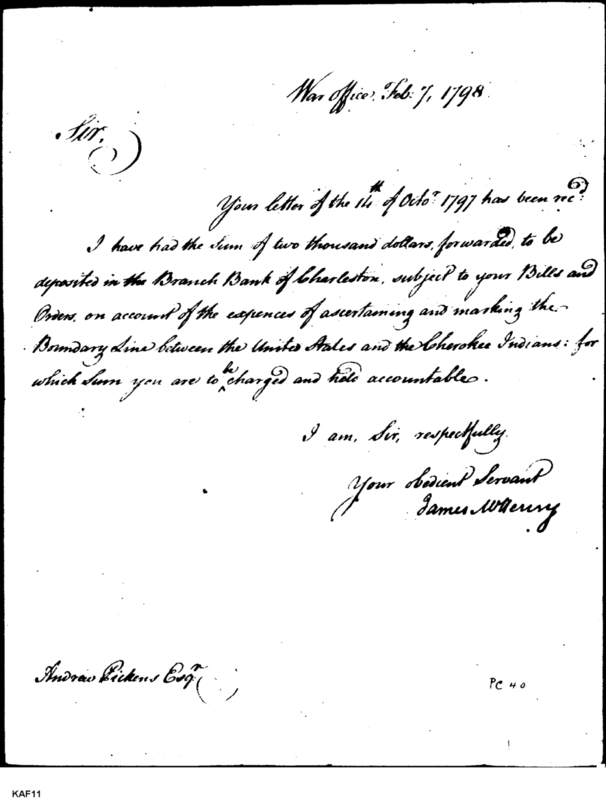 War office, Feb: 7, 1798
Sir,
Your letter of the 14th of Octor 1797 has been recd:
I have had the Sum of two thousand dollars, forwarded, to be
deposited in the Branch Bank of Charleston, subject to your Bills and
Orders, on account of the expences of ascertaining and marking the
Boundary Line between the United States and the Cherokee Indians: for
which Sum you are to be charged and held accountable.
I am, Sir, respectfully
Your obedient Servant
James McHenry
Andrew Pickens Esqr
PC 40
KAF11